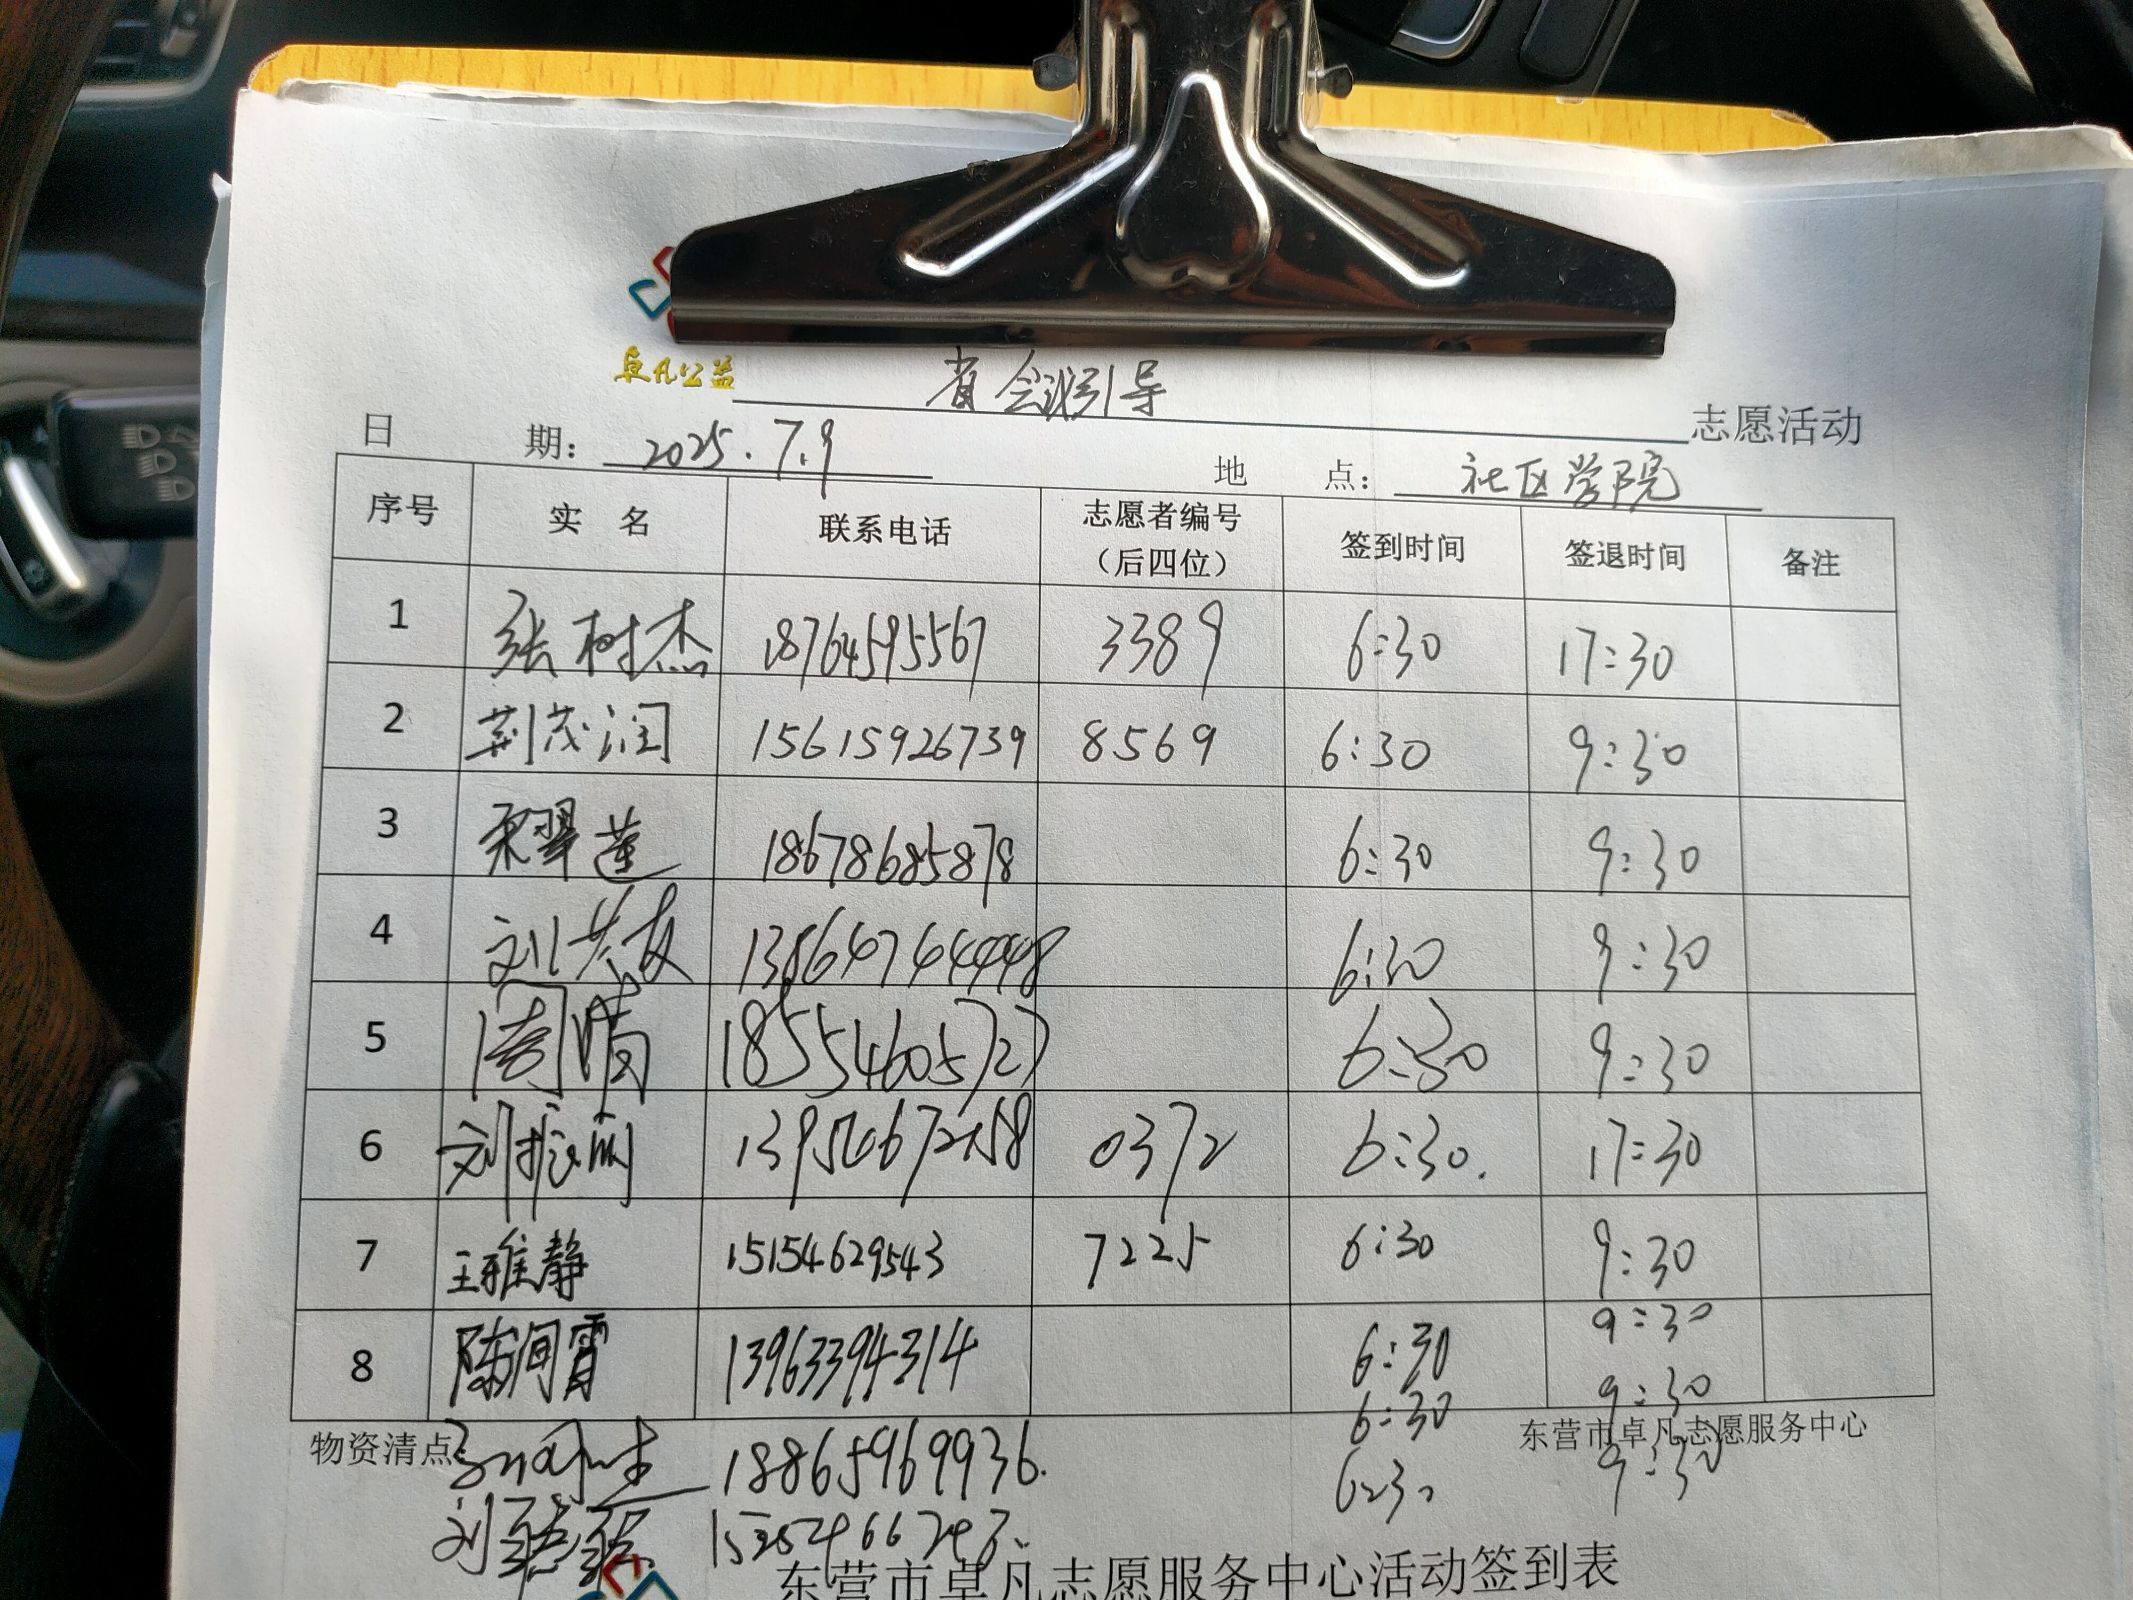 卓凡公益
省会议引导 志愿活动
日 期: 2025.7.9 地 点: 社区学院
序号 实 名 联系电话 志愿者编号（后四位） 签到时间 签退时间 备注
1 张树杰 18764595567 3389 6:30 17:30
2 荆茂润 15615926739 8569 6:30 9:30
3 翠莲 18678685878 6:30 9:30
4 刘 友 6:30 9:30
5 周晴 18554605727 6:30 9:30
6 刘振丽 0372 6:30. 17:30
7 王雅静 15154629543 7225 6:30 9:30
8 陈润霄 13963394314 6:30 9:30
6:30 9:30
物资清点: 东营市卓凡志愿服务中心
18865969936. 6:30 9:30
刘
东营市卓凡志愿服务中心活动签到表